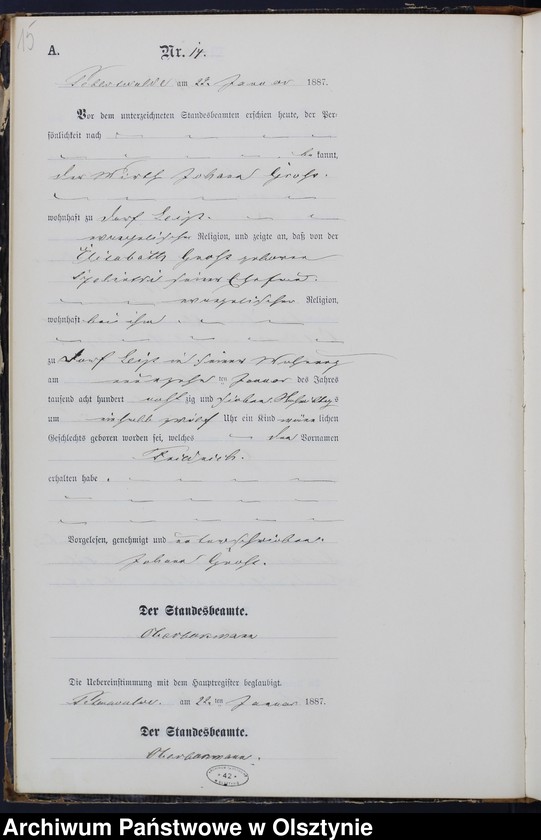 15
A. Nr. 14.
am 22. Januar 1887.
Vor dem unterzeichneten Standesbeamten erschien heute, der Per-
sönlichkeit nach
be kannt,
der Wirth Johann Groß.
wohnhaft zu Dorf
evangelischer Religion, und zeigte an, daß von der
Elisabeth Groß geborene
seiner Ehefrau.
evangelischer Religion,
wohnhaft bei ihm
zu Dorf in seiner Wohnung
am neunzehn ten Januar des Jahres
tausend acht hundert acht zig und sieben Vormittags
um Uhr ein Kind männ lichen
Geschlechts geboren worden sei, welches den Vornamen
Friedrich.
erhalten habe.
Vorgelesen, genehmigt und unterschrieben.
Johann Groß.
Der Standesbeamte.
Die Uebereinstimmung mit dem Hauptregister beglaubigt.
am 22. ten Januar 1887.
Der Standesbeamte.
42
Archiwum Państwowe w Olsztynie